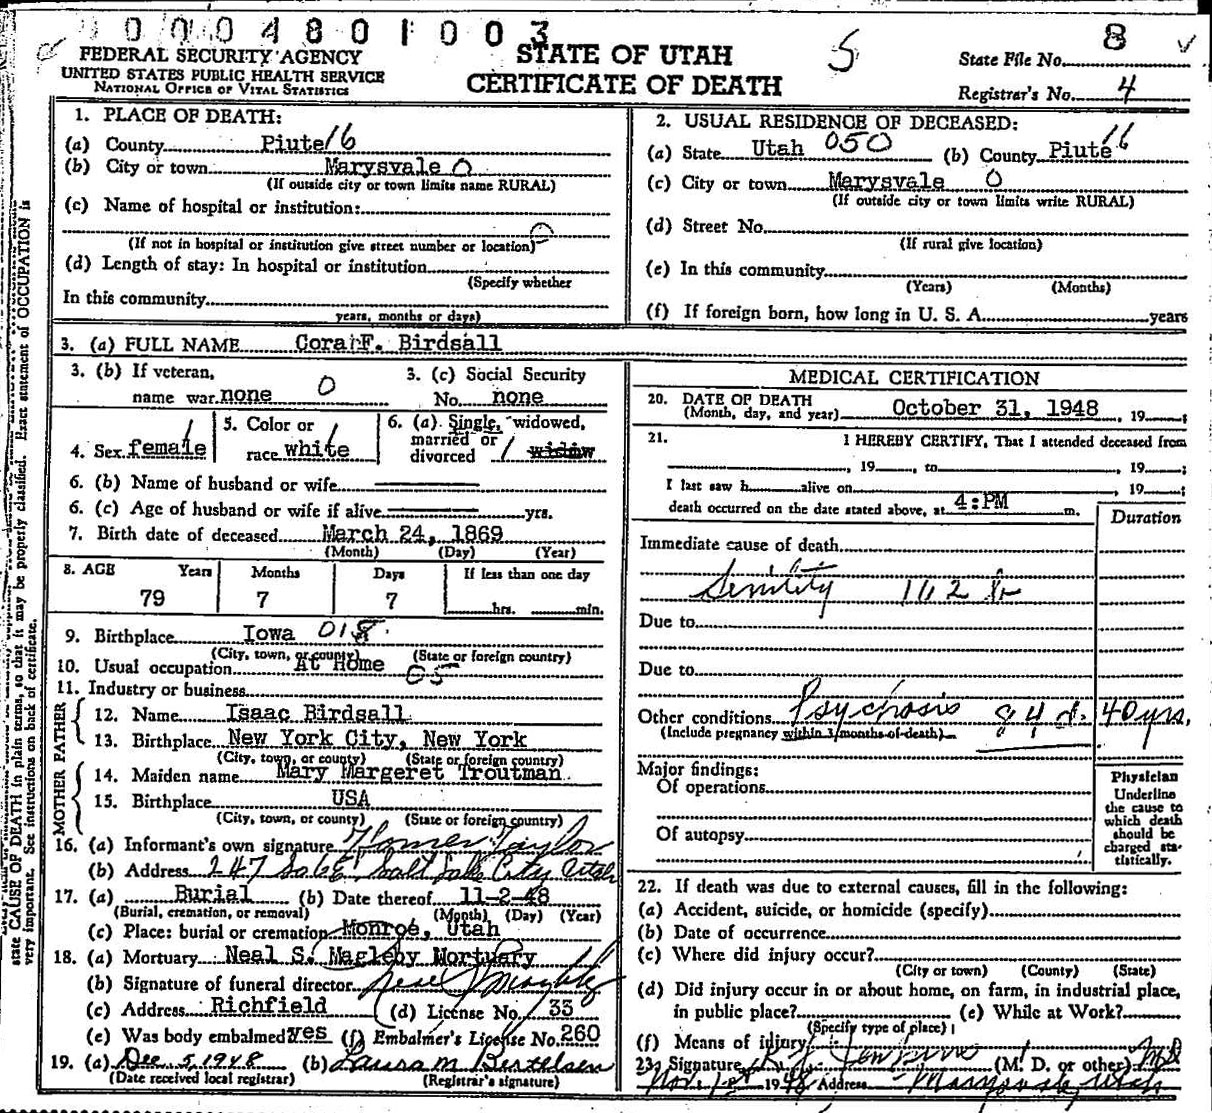 0004801003
FEDERAL SECURITY AGENCY
UNITED STATES PUBLIC HEALTH SERVICE
NATIONAL OFFICE OF VITAL STATISTICS
STATE OF UTAH
CERTIFICATE OF DEATH
5
State File No. 8
Registrar's No. 4
1. PLACE OF DEATH:
(a) County Piute 16
(b) City or town Marysvale 0
(If outside city or town limits name RURAL)
(c) Name of hospital or institution:
(If not in hospital or institution give street number or location)
(d) Length of stay: In hospital or institution
(Specify whether
In this community
years, months or days)
2. USUAL RESIDENCE OF DECEASED:
(a) State Utah 050 (b) County Piute 16
(c) City or town Marysvale 0
(If outside city or town limits write RURAL)
(d) Street No.
(If rural give location)
(e) In this community
(Years) (Months)
(f) If foreign born, how long in U. S. A. years
3. (a) FULL NAME Cora F. Birdsall
3. (b) If veteran, name war none 0
3. (c) Social Security No. none
4. Sex female 1
5. Color or race white 1
6. (a) Single, widowed, married or divorced 1 widow
6. (b) Name of husband or wife
6. (c) Age of husband or wife if alive yrs.
7. Birth date of deceased March 24, 1869
(Month) (Day) (Year)
8. AGE Years Months Days If less than one day
79 7 7 hrs. min.
9. Birthplace Iowa 018
(City, town, or county) (State or foreign country)
10. Usual occupation At Home 05
11. Industry or business
FATHER
12. Name Isaac Birdsall
13. Birthplace New York City, New York
(City, town, or county) (State or foreign country)
MOTHER
14. Maiden name Mary Margeret Troutman
15. Birthplace USA
(City, town, or county) (State or foreign country)
16. (a) Informant's own signature Homer Taylor
(b) Address 247 So 6 E Salt Lake City Utah
17. (a) Burial (b) Date thereof 11-2-48
(Burial, cremation, or removal) (Month) (Day) (Year)
(c) Place: burial or cremation Monroe, Utah
18. (a) Mortuary Neal S. Magleby Mortuary
(b) Signature of funeral director Neal S Magleby
(c) Address Richfield (d) License No. 33
(e) Was body embalmed yes (f) Embalmer's License No. 260
19. (a) Dec 5, 1948 (b) Laura M Bertelsen
(Date received local registrar) (Registrar's signature)
MEDICAL CERTIFICATION
20. DATE OF DEATH
(Month, day, and year) October 31, 1948, 19 ;
21. I HEREBY CERTIFY, That I attended deceased from
, 19 , to , 19 ;
I last saw h alive on , 19 ;
death occurred on the date stated above, at 4:PM m.
Duration
Immediate cause of death
Senility 162
Due to
Due to
Other conditions Psychosis 84 d. 40 yrs.
(Include pregnancy within 3 months of death)
Major findings:
Of operations
Of autopsy
Physician
Underline
the cause to
which death
should be
charged sta-
tistically.
22. If death was due to external causes, fill in the following:
(a) Accident, suicide, or homicide (specify)
(b) Date of occurrence
(c) Where did injury occur?
(City or town) (County) (State)
(d) Did injury occur in or about home, on farm, in industrial place,
in public place? (e) While at Work?
(Specify type of place)
(f) Means of injury
23. Signature (M. D. or other) MD
Nov. 1st 1948 Address Marysvale, Utah
state CAUSE OF DEATH in plain terms, so that it may be properly classified. Exact statement of OCCUPATION is
very important. See instructions on back of certificate.